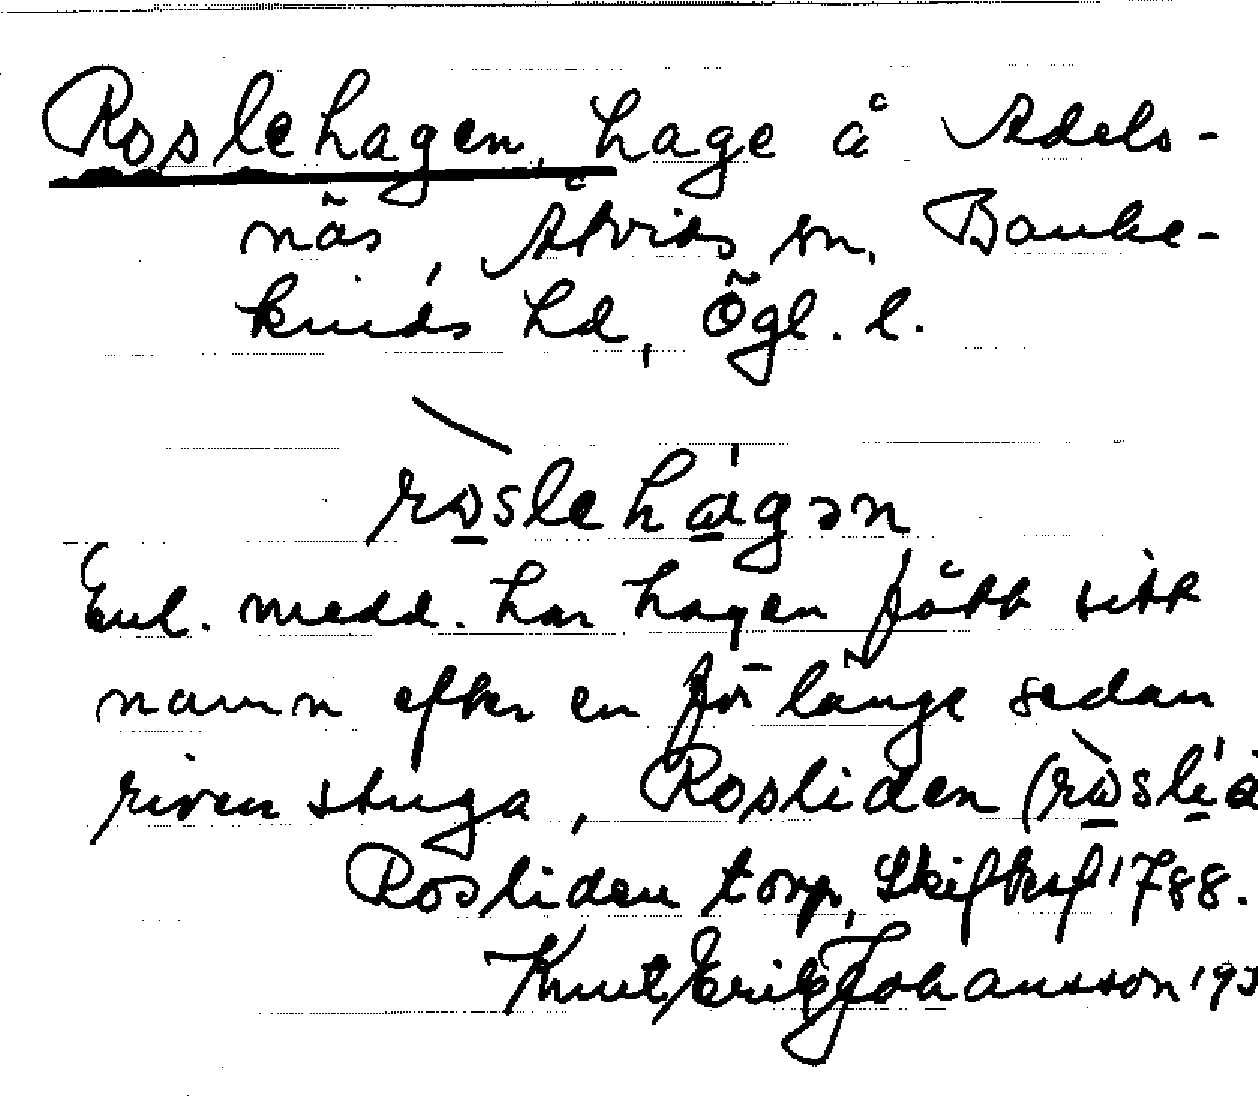 Roslehagen, hage å Adels-
näs, Åtvids sn, Banke-
kinds hd, Ögl. l.
ròslehágən
Enl. medd. har hagen fått sitt
namn efter en för länge sedan
riven stuga, Rosliden (
Rosliden torp, Skifteskf 1788.
Knut Erik Johansson 193